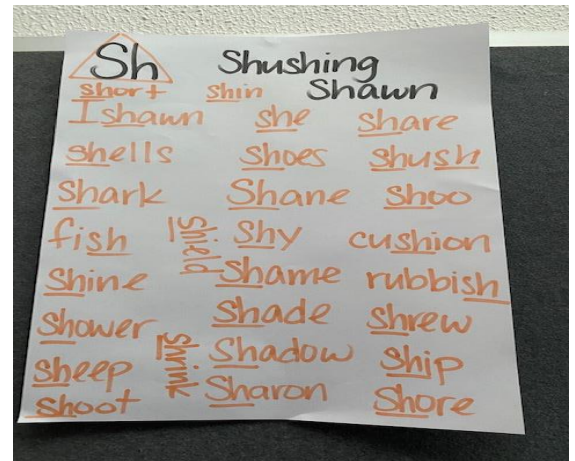 Sh Shushing
Shawn
short shin
Ishawn she share
shells shoes shush
Shark Shane shoo
fish shield shy cushion
shine shame rubbish
shower shade shrew
sheep shrink shadow ship
shoot Sharon shore